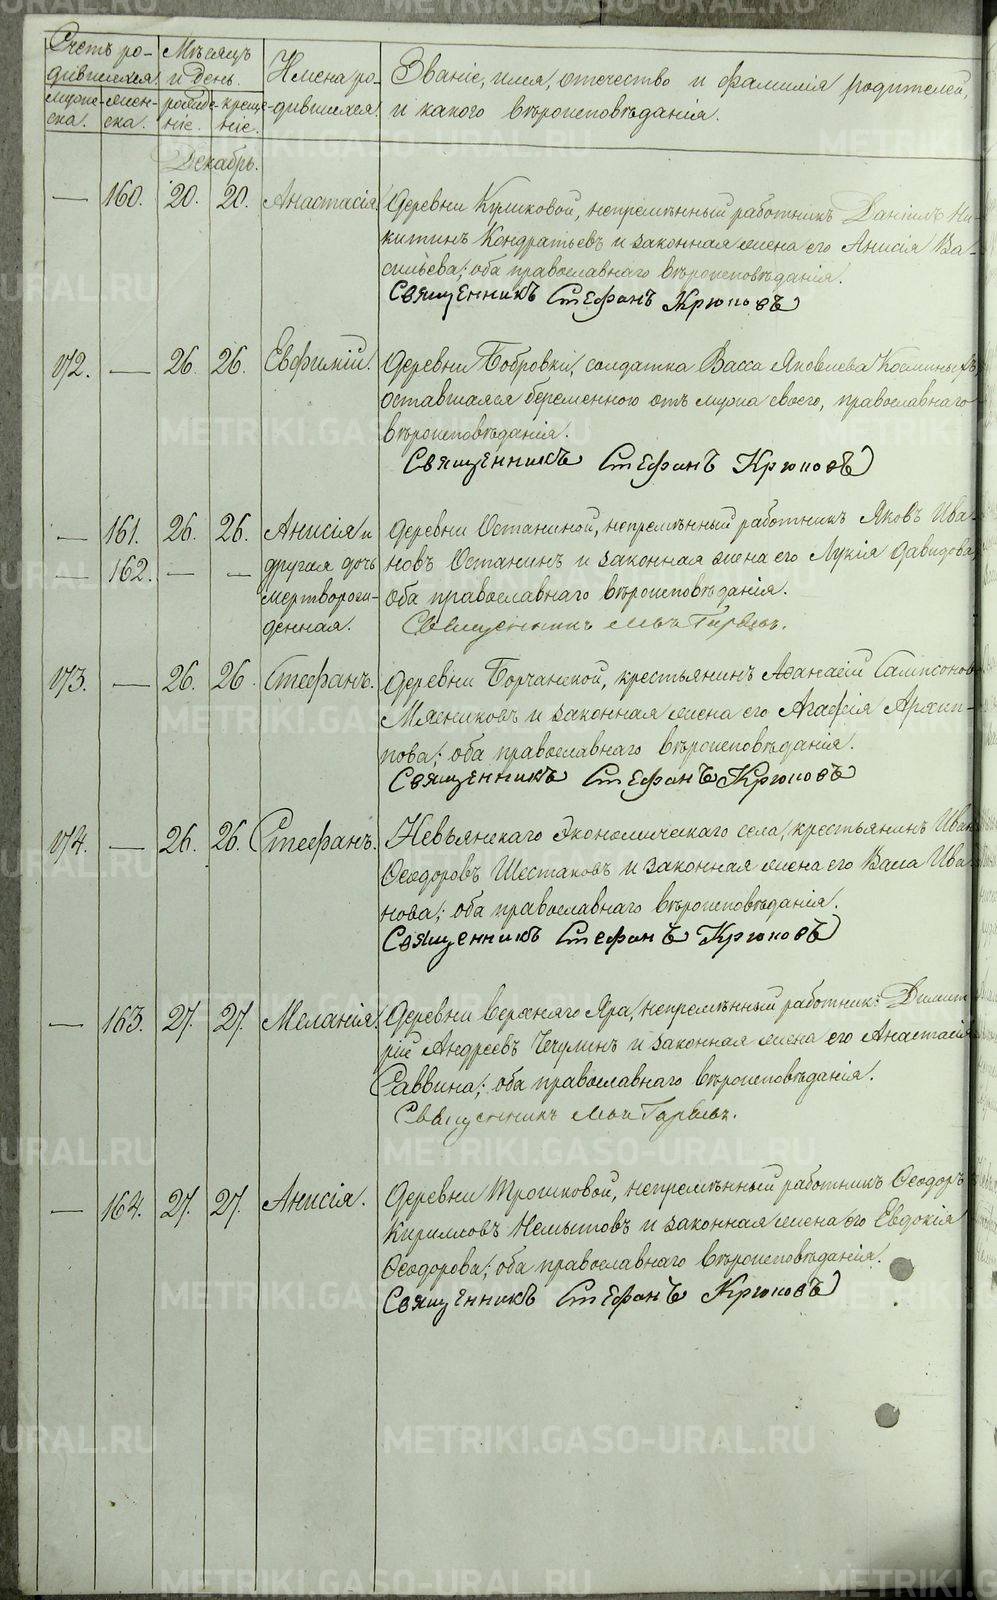 Счетъ ро-
дившихся.
Мѣсяцъ
и день.
Имена ро-
дившихся.
Званіе, имя, отчество и фамилія родителей,
и какого вѣроисповѣданія.
муже-
ска.
жен-
ска.
рожде-
ніе.
креще-
ніе.
Декабрь.
— 160. 20. 20. Анастасія. Деревни Куликовой, непремѣнный работникъ Даніилъ Ни-
китинъ Кондратьевъ и законная жена его Анисія Ва-
сильева; оба православнаго вѣроисповѣданія.
Священникъ Стефанъ Крюковъ
172. — 26. 26. Евфимій. Деревни Бобровки, солдатка Васса Яковлева Косминыхъ,
оставшаяся беременною отъ мужа своего, православнаго
вѣроисповѣданія.
Священникъ Стефанъ Крюковъ
— 161. 26. 26. Анисія и Деревни Останиной, непремѣнный работникъ Яковъ Ива-
— 162. — — другая дочь новъ Останинъ и законная жена его Лукія Давидова
мертворож- оба православнаго вѣроисповѣданія.
денная. Священникъ
173. — 26. 26. Стефанъ. Деревни Борчаниской, крестьянинъ Аѳанасій Сампсоновъ
Мясниковъ и законная жена его Агафія Архип-
пова; оба православнаго вѣроисповѣданія.
Священникъ Стефанъ Крюковъ
174. — 26. 26. Стефанъ. Невьянскаго экономическаго села, крестьянинъ Иванъ
Ѳеодоровъ Шестаковъ и законная жена его Васса Ива-
нова; оба православнаго вѣроисповѣданія.
Священникъ Стефанъ Крюковъ
— 163. 27. 27. Меланія. Деревни верхняго Яра, непремѣнный работник: Димит
рій Андреевъ Чечулинъ и законная жена его Анастасія
Саввина; оба православнаго вѣроисповѣданія.
Священникъ
— 164. 27. 27. Анисія. Деревни Трошковой, непремѣнный работникъ Ѳеодоръ
Кирилловъ Немытовъ и законная жена его Евдокія
Ѳеодорова; оба православнаго вѣроисповѣданія.
Священникъ Стефанъ Крюковъ
METRIKI.GASO-URAL.RU